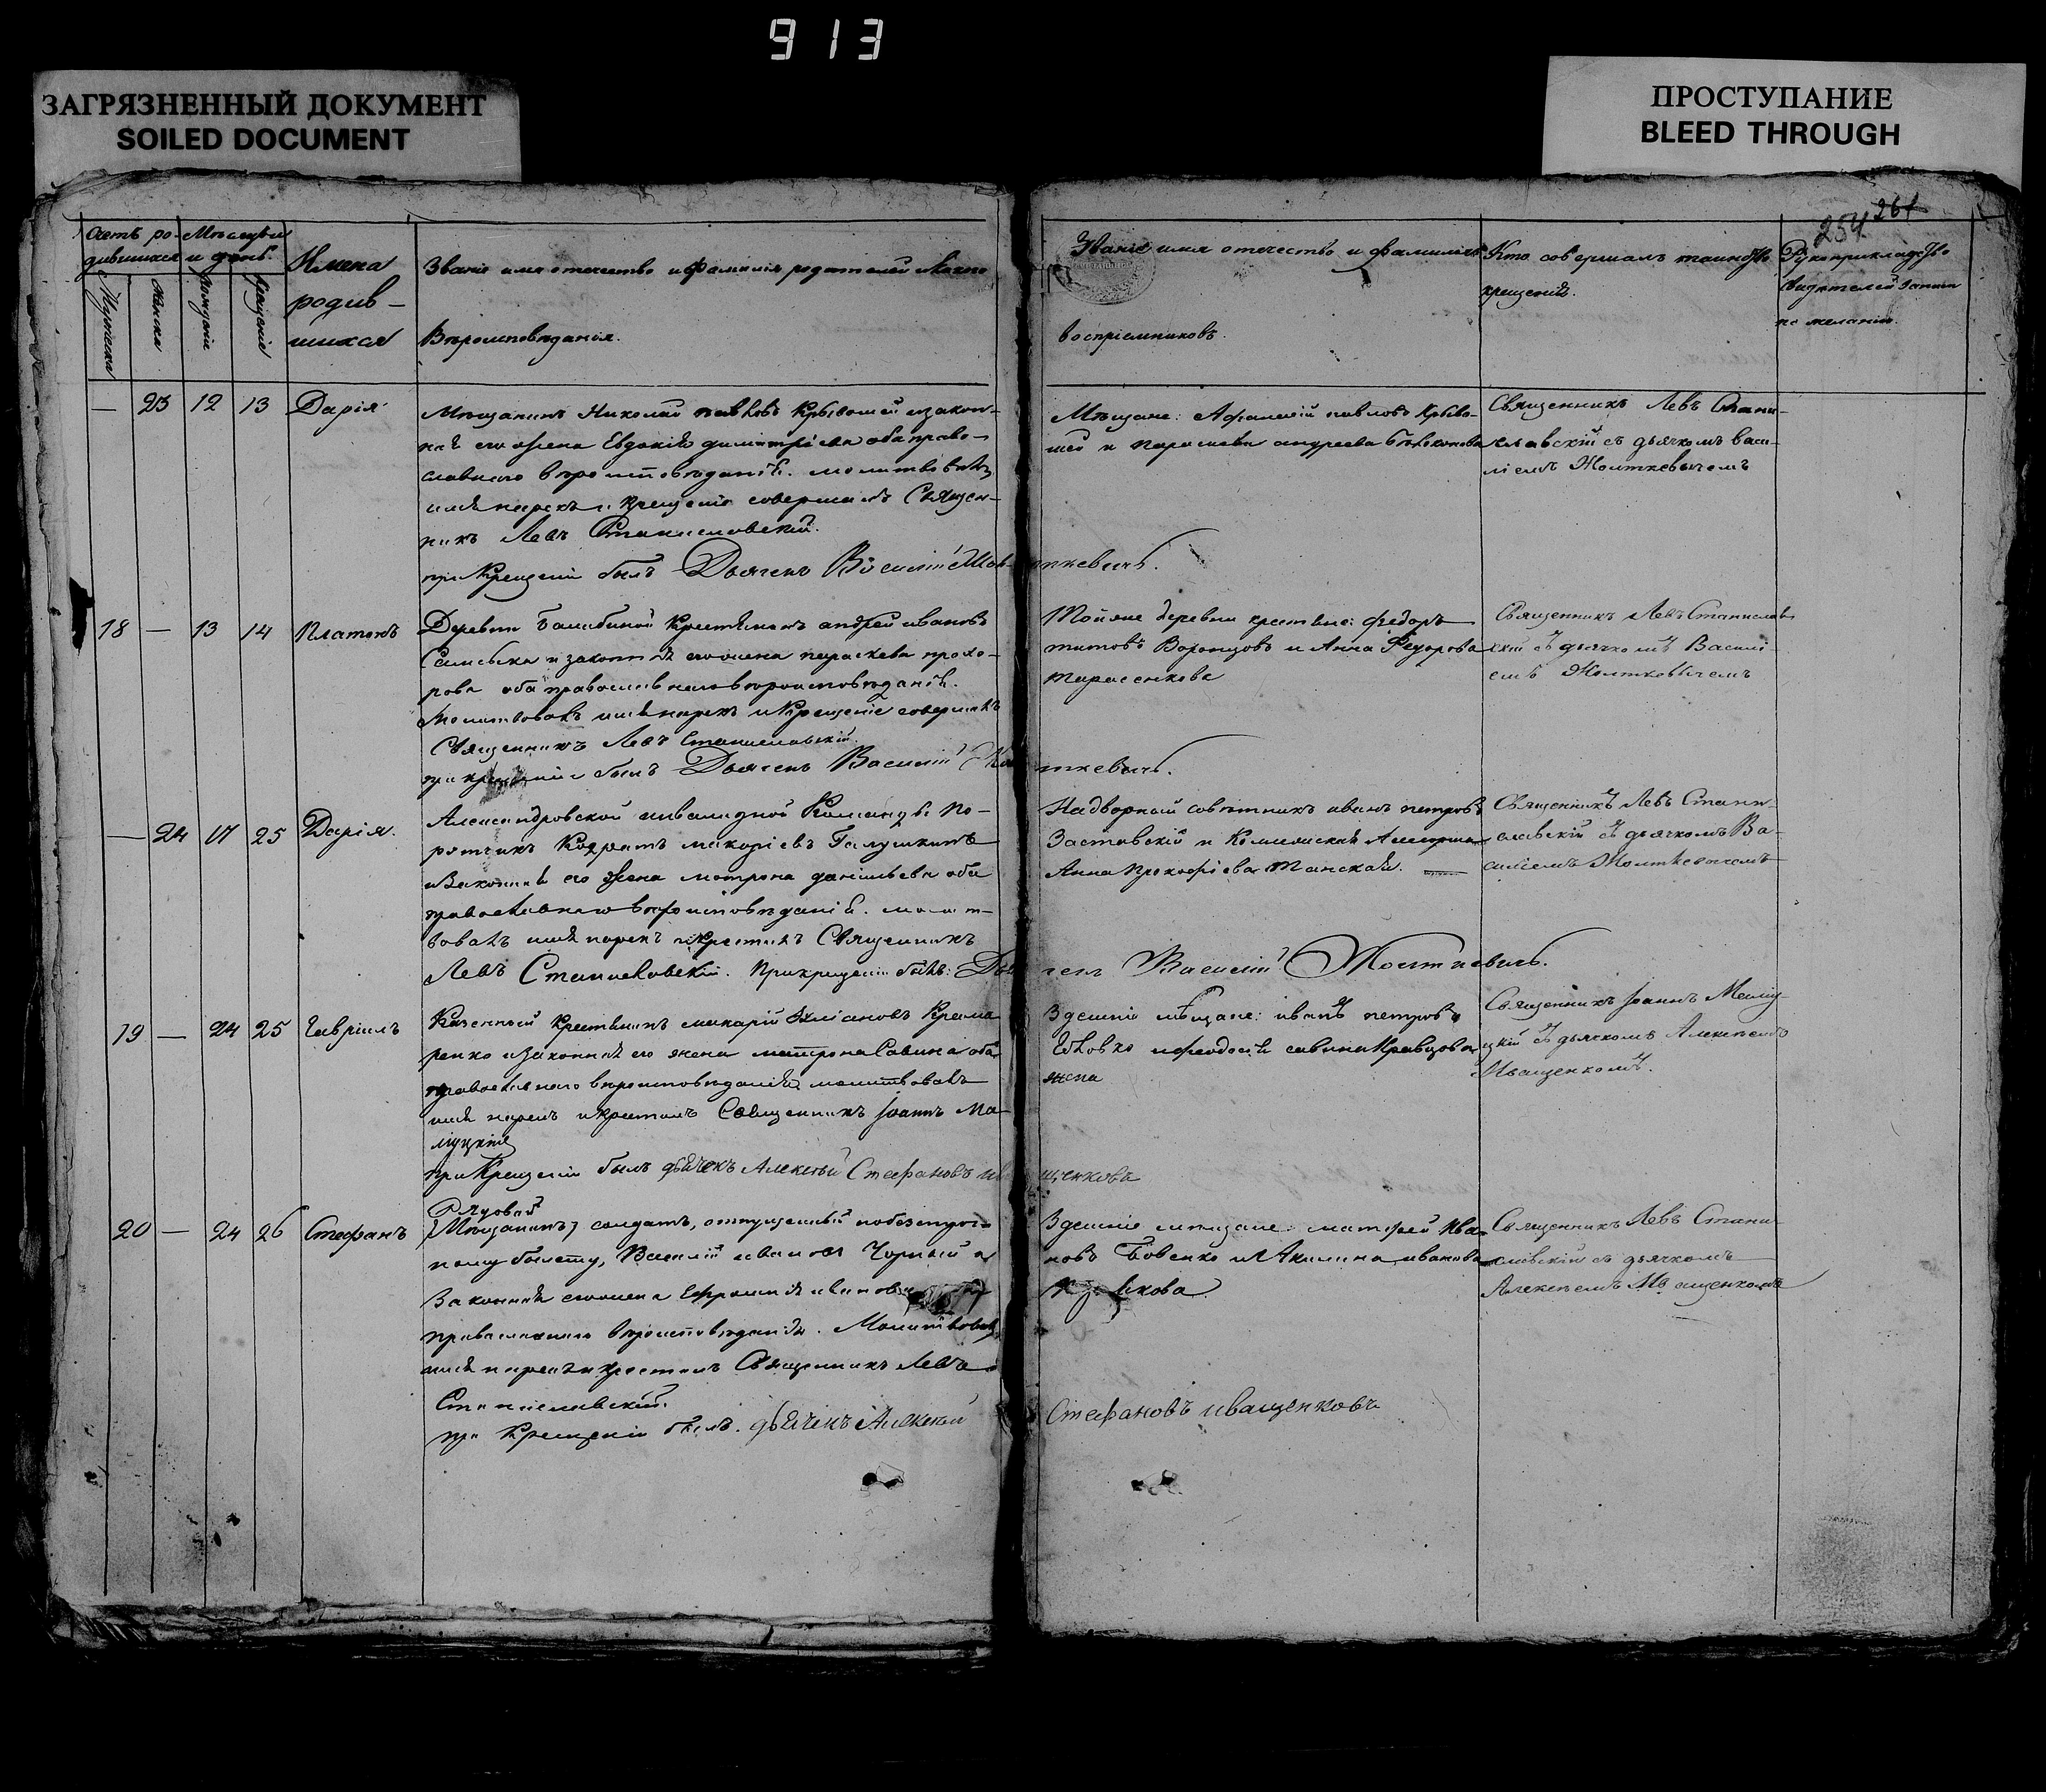 913
ЗАГРЯЗНЕННЫЙ ДОКУМЕНТ
SOILED DOCUMENT
ПРОСТУПАНИЕ
BLEED THROUGH
254 261
Счетъ ро- Мѣсяцъ и
дившихся и день.
Мужеска
Женска
Рожденіе
Крещеніе
Имена
родив-
шихся
Званіе имя отечество и фамилія родителей и какого
Вѣроисповѣданія.
Званіе имя отечество и фамилія
воспріемниковъ.
Кто совершалъ таинство
крещенія.
Рукоприкладство
свидѣтелей записи
по желанію.
— 23 12 13 Дарія
Мѣщанинъ Николай павловъ Крывошей и закон-
ная его жена Евдокія димитріева оба право-
славнаго вѣроисповѣданія. молитвовалъ
имя нарекъ и Крещеніе совершалъ Священ-
никъ Левъ Станиславскій.
при Крещеніи былъ Дьячекъ Василій Жол-
ткевичъ.
Мѣщане: Афанасій павловъ Крыво-
шей и параскева андреева
Священникъ Левъ Стани-
славскій съ дьячкомъ васи-
ліемъ Жолткевичемъ
18 — 13 14 Платонъ
Деревни Крестьянинъ андрей ивановъ
и законная его жена параскева прохо-
рова оба православнаго вѣроисповѣданія.
Молитвовалъ имя нарекъ и Крещеніе совершалъ
Священникъ Левъ Станиславскій.
при крещеніи былъ Дьячекъ Василій Жол
ткевичъ.
Той же деревни крестьяне: федоръ
титовъ Воронцовъ и Анна Федорова
тарасенкова
Священникъ Левъ Станислав-
скій съ дьячкомъ Василі-
емъ Жолткевичемъ
— 24 17 25 Дарія.
Александровской инвалидной Команды По-
ротчикъ Кодратъ макаріевъ Галушкинъ
и Законная его Жена матрона даніильева оба
православнаго вѣроисповѣданія. молит-
вовалъ имя нарекъ и крестилъ Священникъ
Левъ Станиславскій. При крещеніи былъ: Дья
чекъ Василій Жолткевичъ.
Надворный совѣтникъ иванъ петровъ
Заставскій и
Анна Прокофіева Танская.
Священникъ Левъ Стани-
славскій съ дьячкомъ Ва-
силіемъ Жолткевичемъ
19 — 24 25 Гавріилъ
Казенный Крестьянинъ макарій Еміліановъ Крама
ренко и законная его жена матрона Савина оба
православнаго вѣроисповѣданія молитвовалъ
имя нарекъ и крестилъ Священникъ Іоаннъ Ма-
люцкій
при Крещеніи былъ дьячекъ Алексѣй Стефановъ ива
щенковъ
Здешніе мѣщане: иванъ петровъ
и феодосія савина Кравцова
жена
Священникъ Іоаннъ Малю-
цкій съ дьячкомъ Алексѣемъ
Иващенкомъ.
20 — 24 26 Стефанъ
Рядовой
[Мѣщанинъ] солдатъ, отпущенный по безсроч-
ному билету, Василій ивановъ Чорный и
Законная его жена Ефросинія иванова
православнаго вѣроисповѣданія. Молитвовалъ
имя нарекъ и крестилъ Священникъ Левъ
Станиславскій.
при Крещеніи былъ. дьячекъ Алексѣй
Стефановъ иващенковъ
Здешніе мѣщане: матфей Ива-
новъ Бовенко и Акилина иванова
Священникъ Левъ Стани-
славскій съ дьячкомъ
Алексѣемъ Иващенкомъ